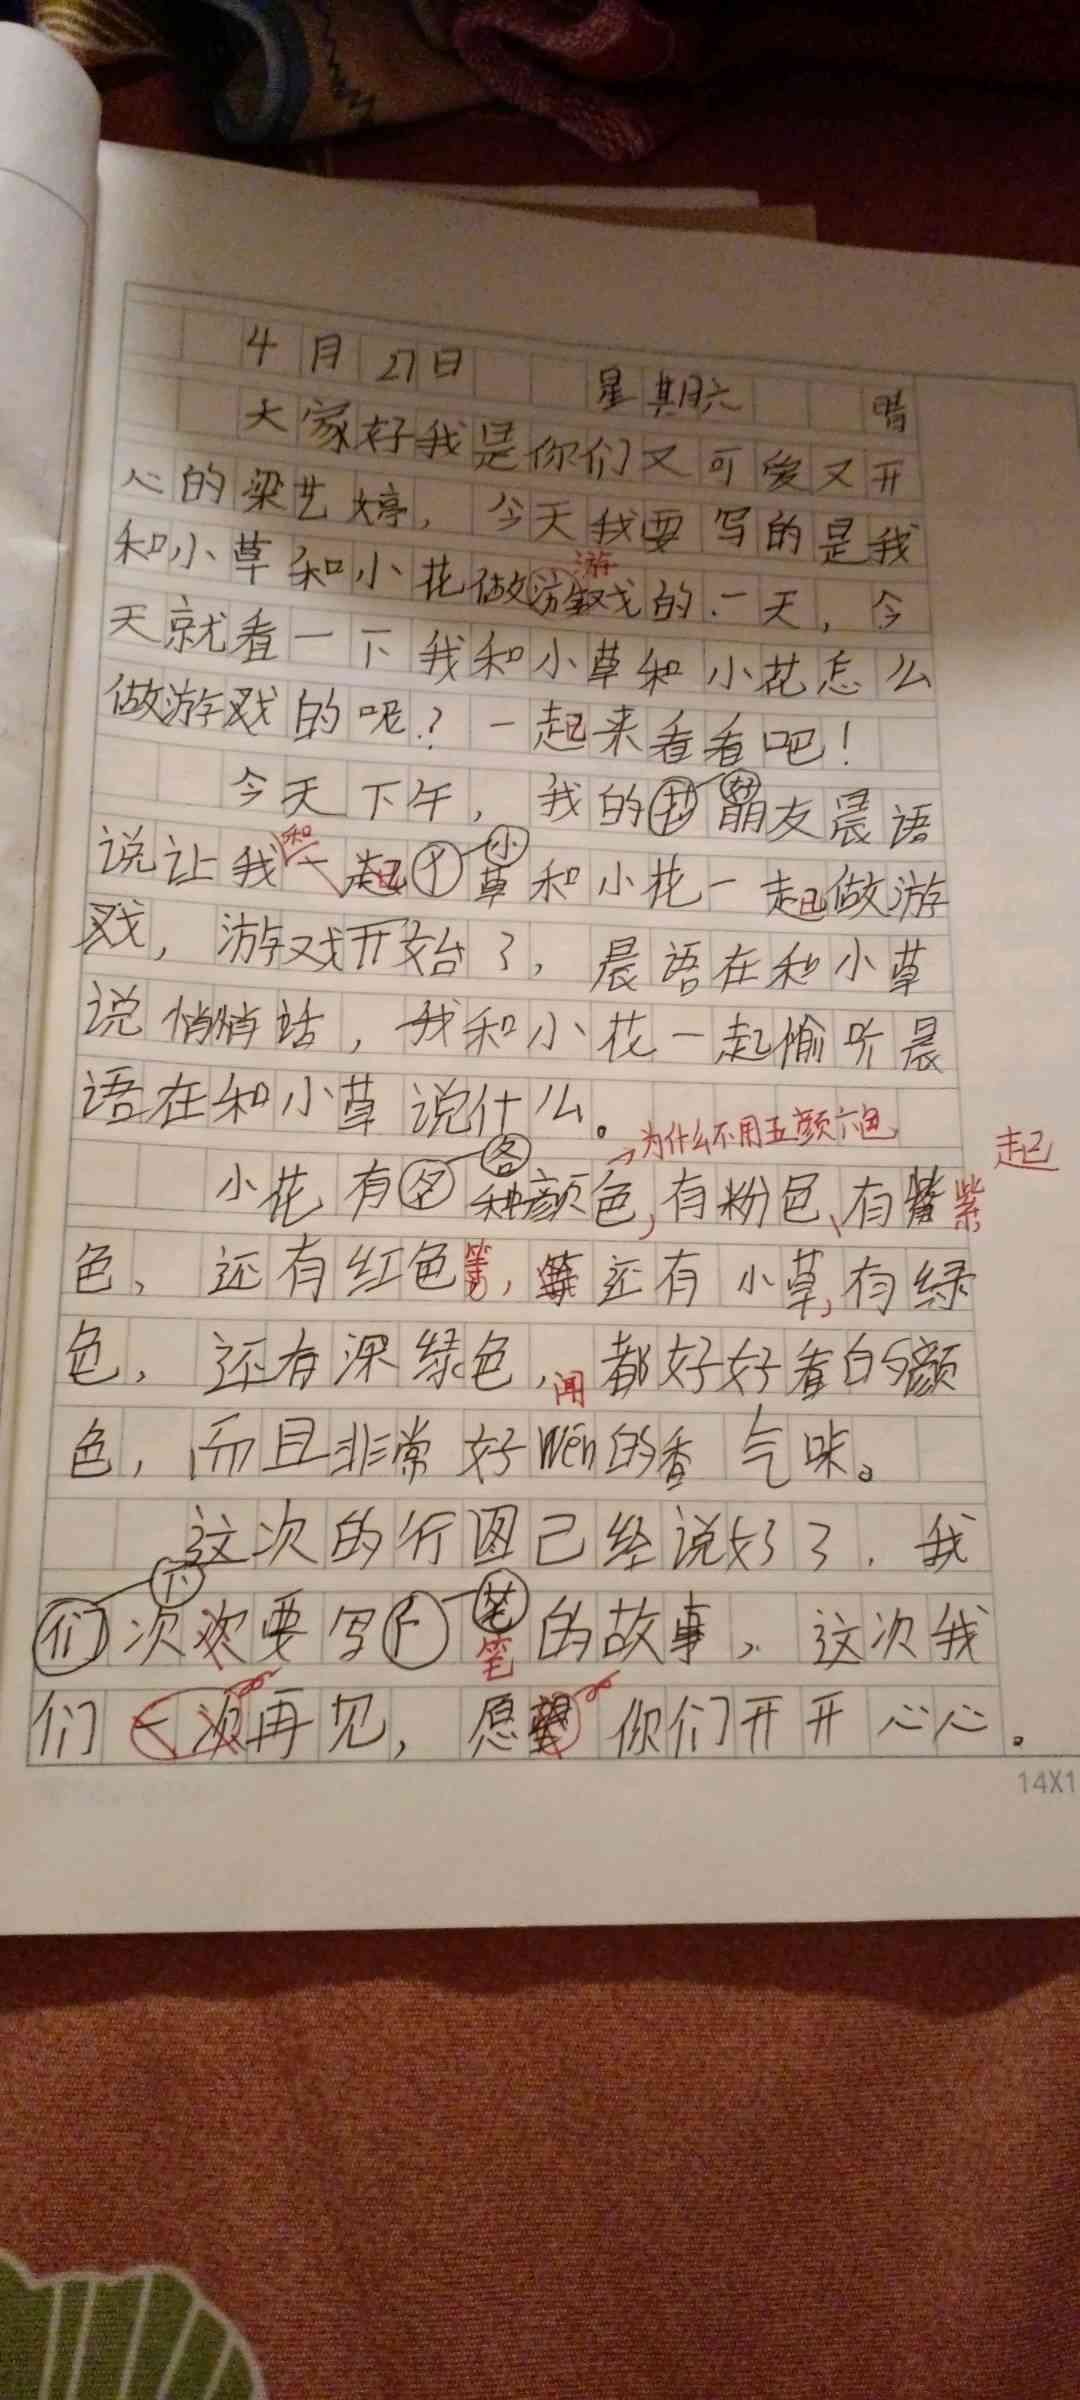 4月27日 星期六 晴
大家好我是你们又可爱又开
心的梁艺婷，今天我要写的是我
游
和小草和小花做游戏的一天，今
天就看一下我和小草和小花怎么
做游戏的呢？一起来看看吧！
好
今天下午，我的朋友晨语
和 小
说让我一起草和小花一起做游
戏，游戏开始了，晨语在和小草
说悄悄话，我和小花一起偷听晨
语在和小草说什么。
各 →为什么不用五颜六色
起
小花有种颜色，有粉色、有紫
色，还有红色，还有小草，有绿
色，还有深绿色，都好好看的颜
闻
色，而且非常好Wén的香气味。
这次的行图已经说好了，我
下 笔
们次要写的故事，这次我
笔
们一次再见，愿望你们开开心心。
14X1